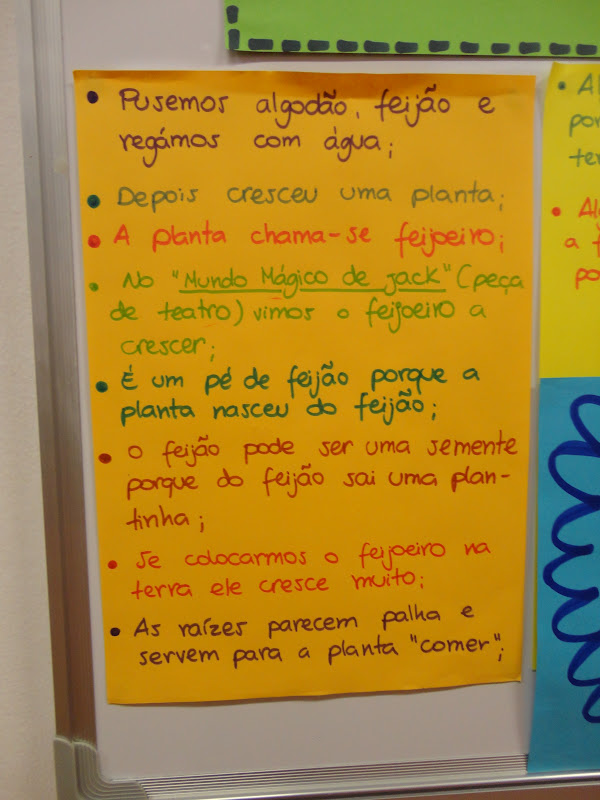 • Pusemos algodão, feijão e
regámos com água;
• Depois cresceu uma planta;
• A planta chama-se feijoeiro;
• No "Mundo Mágico de Jack" (peça
de teatro) vimos o feijoeiro a
crescer;
• É um pé de feijão porque a
planta nasceu do feijão;
• O feijão pode ser uma semente
porque do feijão sai uma plan-
tinha;
• Se colocarmos o feijoeiro na
terra ele cresce muito;
• As raízes parecem palha e
servem para a planta "comer";